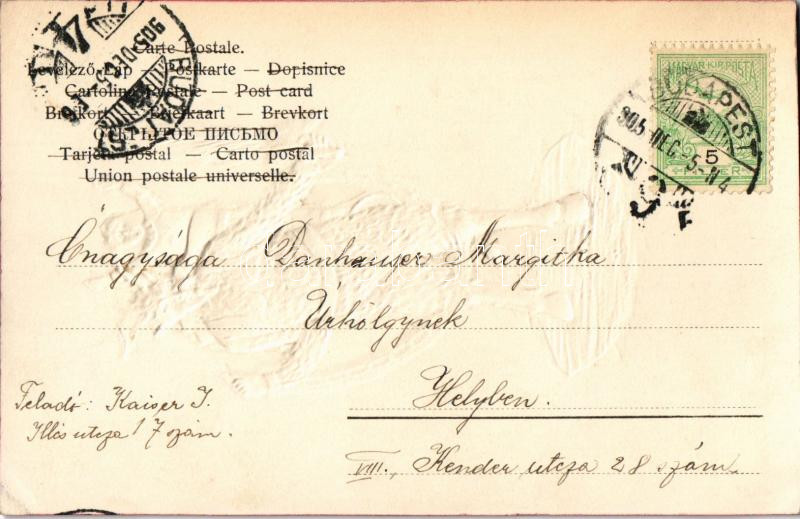 Carte Postale.
Levelező-Lap — Postkarte — Dopisnice
Cartolina Postale — Post card
Briefkaart — Brevkort
ОТКРЫТОЕ ПИСЬМО
Tarjeta postal — Carto postal
Union postale universelle.
BUDAPEST
905 DEC
MAGYAR KIR. POSTA
BUDAPEST
905 DEC -5
5
Őnagysága Danhauser Margitka
Úrhölgynek
Helyben.
Feladó: Kaiser I.
Illés utcza 17 szám.
VIII., Kender utcza 28 szám.